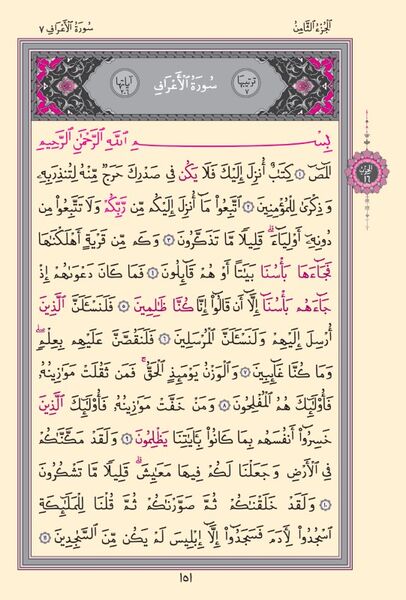 الجزء الثامن
سورة الأعراف ٧
ترتيبها ٧
سُورَةُ الْأَعْرَافِ
آياتها ٢٠٦
بِسْمِ اللَّهِ الرَّحْمَٰنِ الرَّحِيمِ
الٓمٓصٓ ۝١ كِتَٰبٌ أُنزِلَ إِلَيْكَ فَلَا يَكُن فِى صَدْرِكَ حَرَجٌ مِّنْهُ لِتُنذِرَ بِهِۦ
وَذِكْرَىٰ لِلْمُؤْمِنِينَ ۝٢ ٱتَّبِعُوا۟ مَآ أُنزِلَ إِلَيْكُم مِّن رَّبِّكُمْ وَلَا تَتَّبِعُوا۟ مِن
دُونِهِۦٓ أَوْلِيَآءَ ۗ قَلِيلًا مَّا تَذَكَّرُونَ ۝٣ وَكَم مِّن قَرْيَةٍ أَهْلَكْنَٰهَا
فَجَآءَهَا بَأْسُنَا بَيَٰتًا أَوْ هُمْ قَآئِلُونَ ۝٤ فَمَا كَانَ دَعْوَىٰهُمْ إِذْ
جَآءَهُم بَأْسُنَآ إِلَّآ أَن قَالُوٓا۟ إِنَّا كُنَّا ظَٰلِمِينَ ۝٥ فَلَنَسْـَٔلَنَّ ٱلَّذِينَ
أُرْسِلَ إِلَيْهِمْ وَلَنَسْـَٔلَنَّ ٱلْمُرْسَلِينَ ۝٦ فَلَنَقُصَّنَّ عَلَيْهِم بِعِلْمٍ ۖ
وَمَا كُنَّا غَآئِبِينَ ۝٧ وَٱلْوَزْنُ يَوْمَئِذٍ ٱلْحَقُّ ۚ فَمَن ثَقُلَتْ مَوَٰزِينُهُۥ
فَأُو۟لَٰٓئِكَ هُمُ ٱلْمُفْلِحُونَ ۝٨ وَمَنْ خَفَّتْ مَوَٰزِينُهُۥ فَأُو۟لَٰٓئِكَ ٱلَّذِينَ
خَسِرُوٓا۟ أَنفُسَهُم بِمَا كَانُوا۟ بِـَٔايَٰتِنَا يَظْلِمُونَ ۝٩ وَلَقَدْ مَكَّنَّٰكُمْ
فِى ٱلْأَرْضِ وَجَعَلْنَا لَكُمْ فِيهَا مَعَٰيِشَ ۗ قَلِيلًا مَّا تَشْكُرُونَ
۝١٠ وَلَقَدْ خَلَقْنَٰكُمْ ثُمَّ صَوَّرْنَٰكُمْ ثُمَّ قُلْنَا لِلْمَلَٰٓئِكَةِ
ٱسْجُدُوا۟ لِءَادَمَ فَسَجَدُوٓا۟ إِلَّآ إِبْلِيسَ لَمْ يَكُن مِّنَ ٱلسَّٰجِدِينَ ۝١١
الحزب ١٦
١٥١